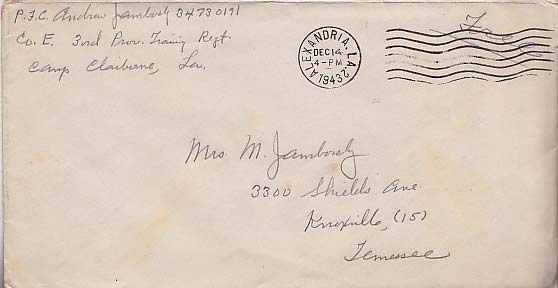 P.F.C. Andrew Jambosly 34730191
Co. E. 3rd Prov. Traing Regt.
Camp Claiborne, La.
ALEXANDRIA, LA.
DEC 14
4-PM
1943
2
Free
Mrs M. Jambosly
3300 Shields Ave.
Knoxville, (15)
Tennessee